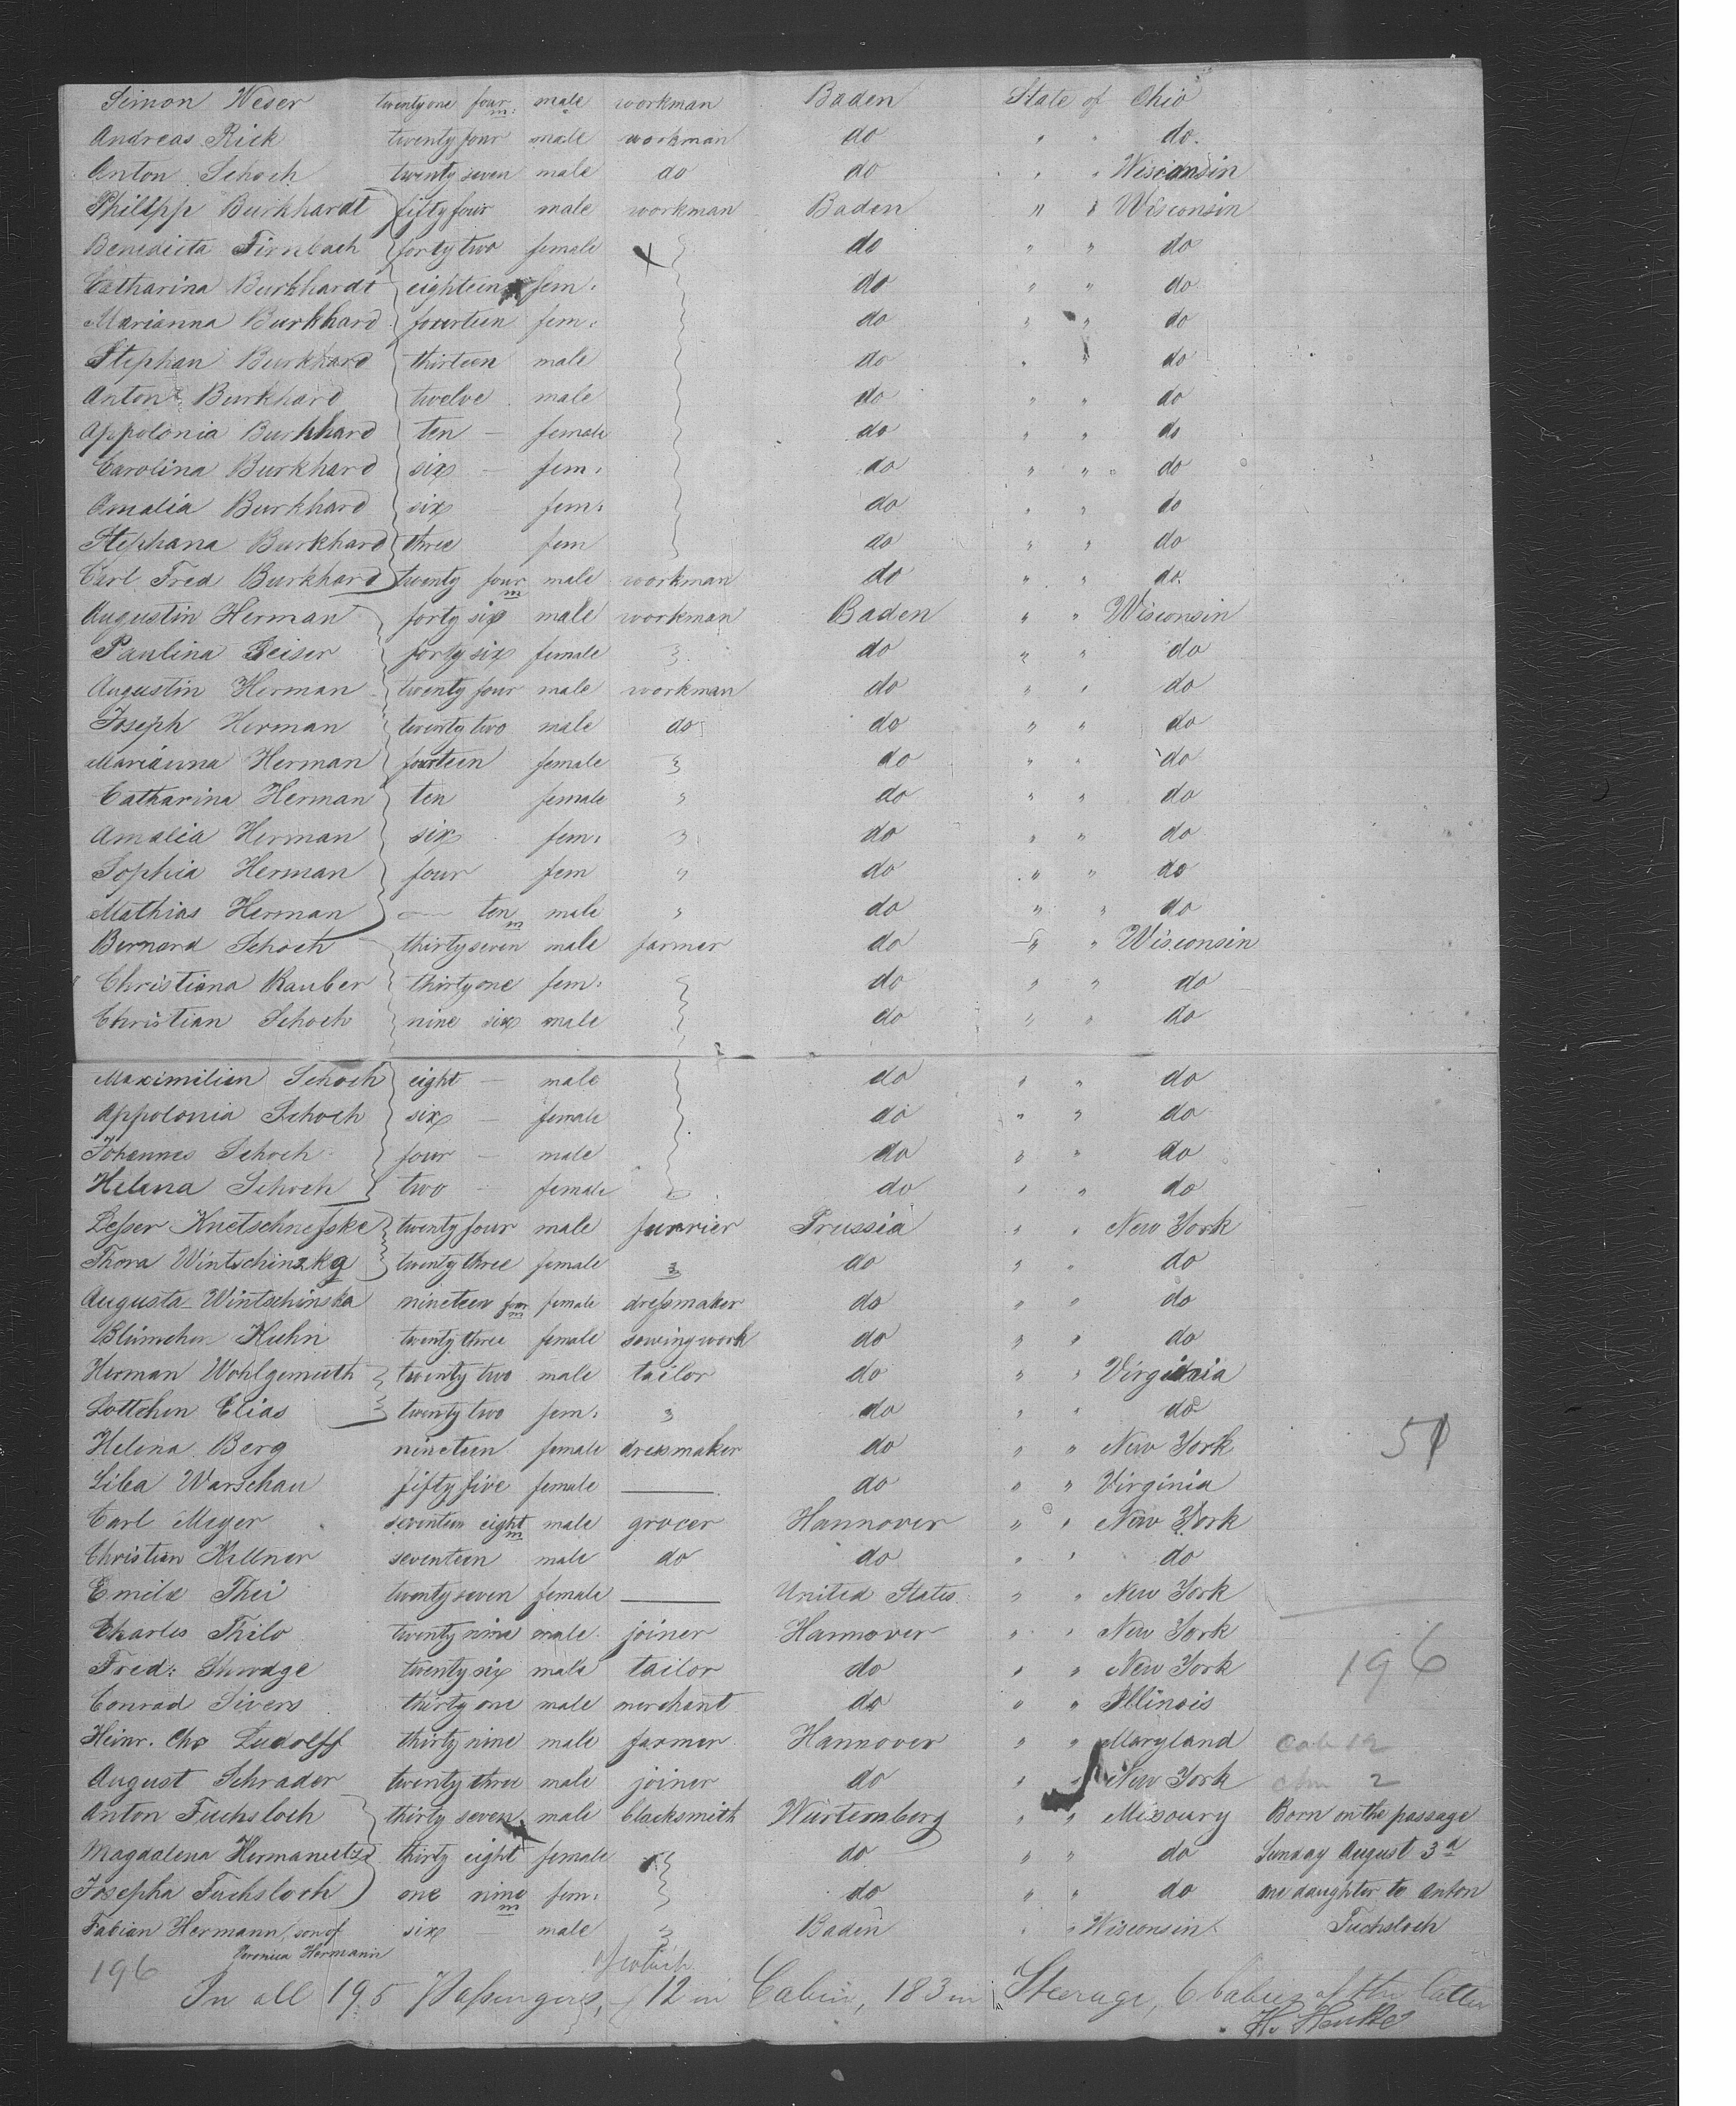 Simon Weser twentyone four m: male workman Baden State of Ohio
Andreas Rick twenty four male workman do " " do.
Anton Schoch twenty seven male do do " " Wisconsin
Philipp Burkhardt fifty four male workman Baden " " Wisconsin
Benedicta Firnbach forty two female do " " do
Catharina Burkhardt eighteen fem: do " " do
Marianna Burkhard fourteen fem: do " " do
Stephan Burkhard thirteen male do " " do
Anton Burkhard twelve male do " " do
Appolonia Burkhard ten — female do " " do
Carolina Burkhard six — fem: do " " do
Amalia Burkhard six fem: do " " do
Stephana Burkhard three fem do " " do
Carl Fred Burkhard twenty four m male workman do " " do.
Augustin Herman forty six male workman Baden " " Wisconsin
Paulina Geiser forty six female do " " do
Augustin Herman twenty four male workman do " " do
Joseph Herman twenty two male do do " " do
Marianna Herman fourteen female do " " do
Catharina Herman ten female " do " " do
Amalia Herman six fem: do " " do
Sophia Herman four fem " do " " do
Mathias Herman — ten m male " do " " do
Bernard Schoch thirty seven male farmer do " " Wisconsin
Christiana Rauber thirty one fem: do " " do
Christian Schoch nine six male do " " do
Maximilian Schoch eight — male do " " do
Appolonia Schoch six — female do " " do
Johannes Schoch four — male do " " do
Helena Schoch two female do " " do
Lesser twenty four male furrier Prussia " " New York
Thora twenty three female do " " do
Augusta Wintschinska nineteen four m female dressmaker do " " do
Blümchen Kuhn twenty three female sewing work do " " do
Herman Wohlgemuth twenty two male tailor do " " Virginia
Lottchen Elias twenty two fem: do " " do
Helena Berg nineteen female dressmaker do " " New York 51
Liba Warschau fifty five female — do " " Virginia
Carl Meyer seventeen eight m male grocer Hannover " " New York
Christian Kellner seventeen male do do " " do
Emilie Thei twenty seven female — United States " " New York
Charles Thilo twenty nine male joiner Hannover " " New York
Fred: twenty six male tailor do " " New York 196
Conrad Sivers thirty one male merchant do " " Illinois
Heinr. Chr Ludolff thirty nine male farmer Hannover " " Maryland Cab 12
August Schrader twenty three male joiner do " " New York 2
Anton Fuchsloch thirty seven male blacksmith Würtemberg " " Missoury Born on the passage
Magdalena thirty eight female do " " do Sunday August 3d
Josepha Fuchsloch one nine m fem: do " " do one daughter to Anton
Fabian Hermann, son of six male Baden " " Wisconsin Fuchsloch
Veronica Hermann
196 of which
In all 195 Passengers, 12 in Cabin, 183 in Steerage, 6 babies of the latter